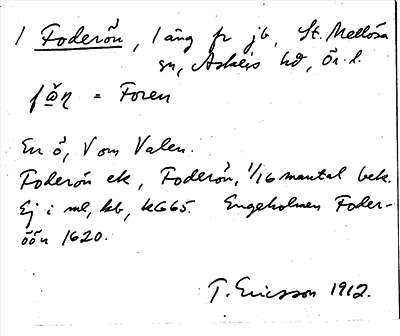 / Foderön, / äng fr jb, St. Mellösa
sn, Askers hd, Ör. l.
= Foren
En ö, V om Valen.
Foderön ek, Foderön, 1/16 mantal bek.
Ej i ml, kb, kG65. Engeholmen Foder-
öön 1620.
T. Ericsson 1912.